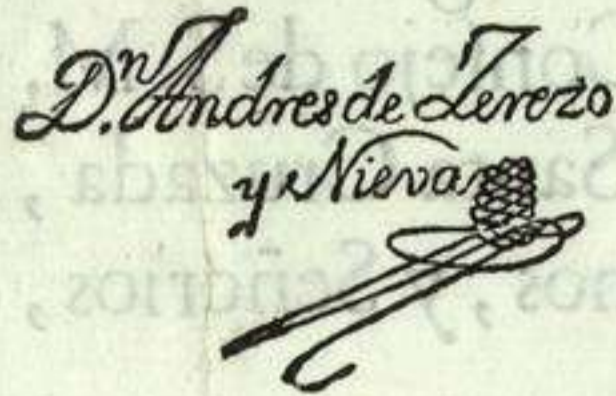 D.ⁿ Andres de Zerezo
y Nieva